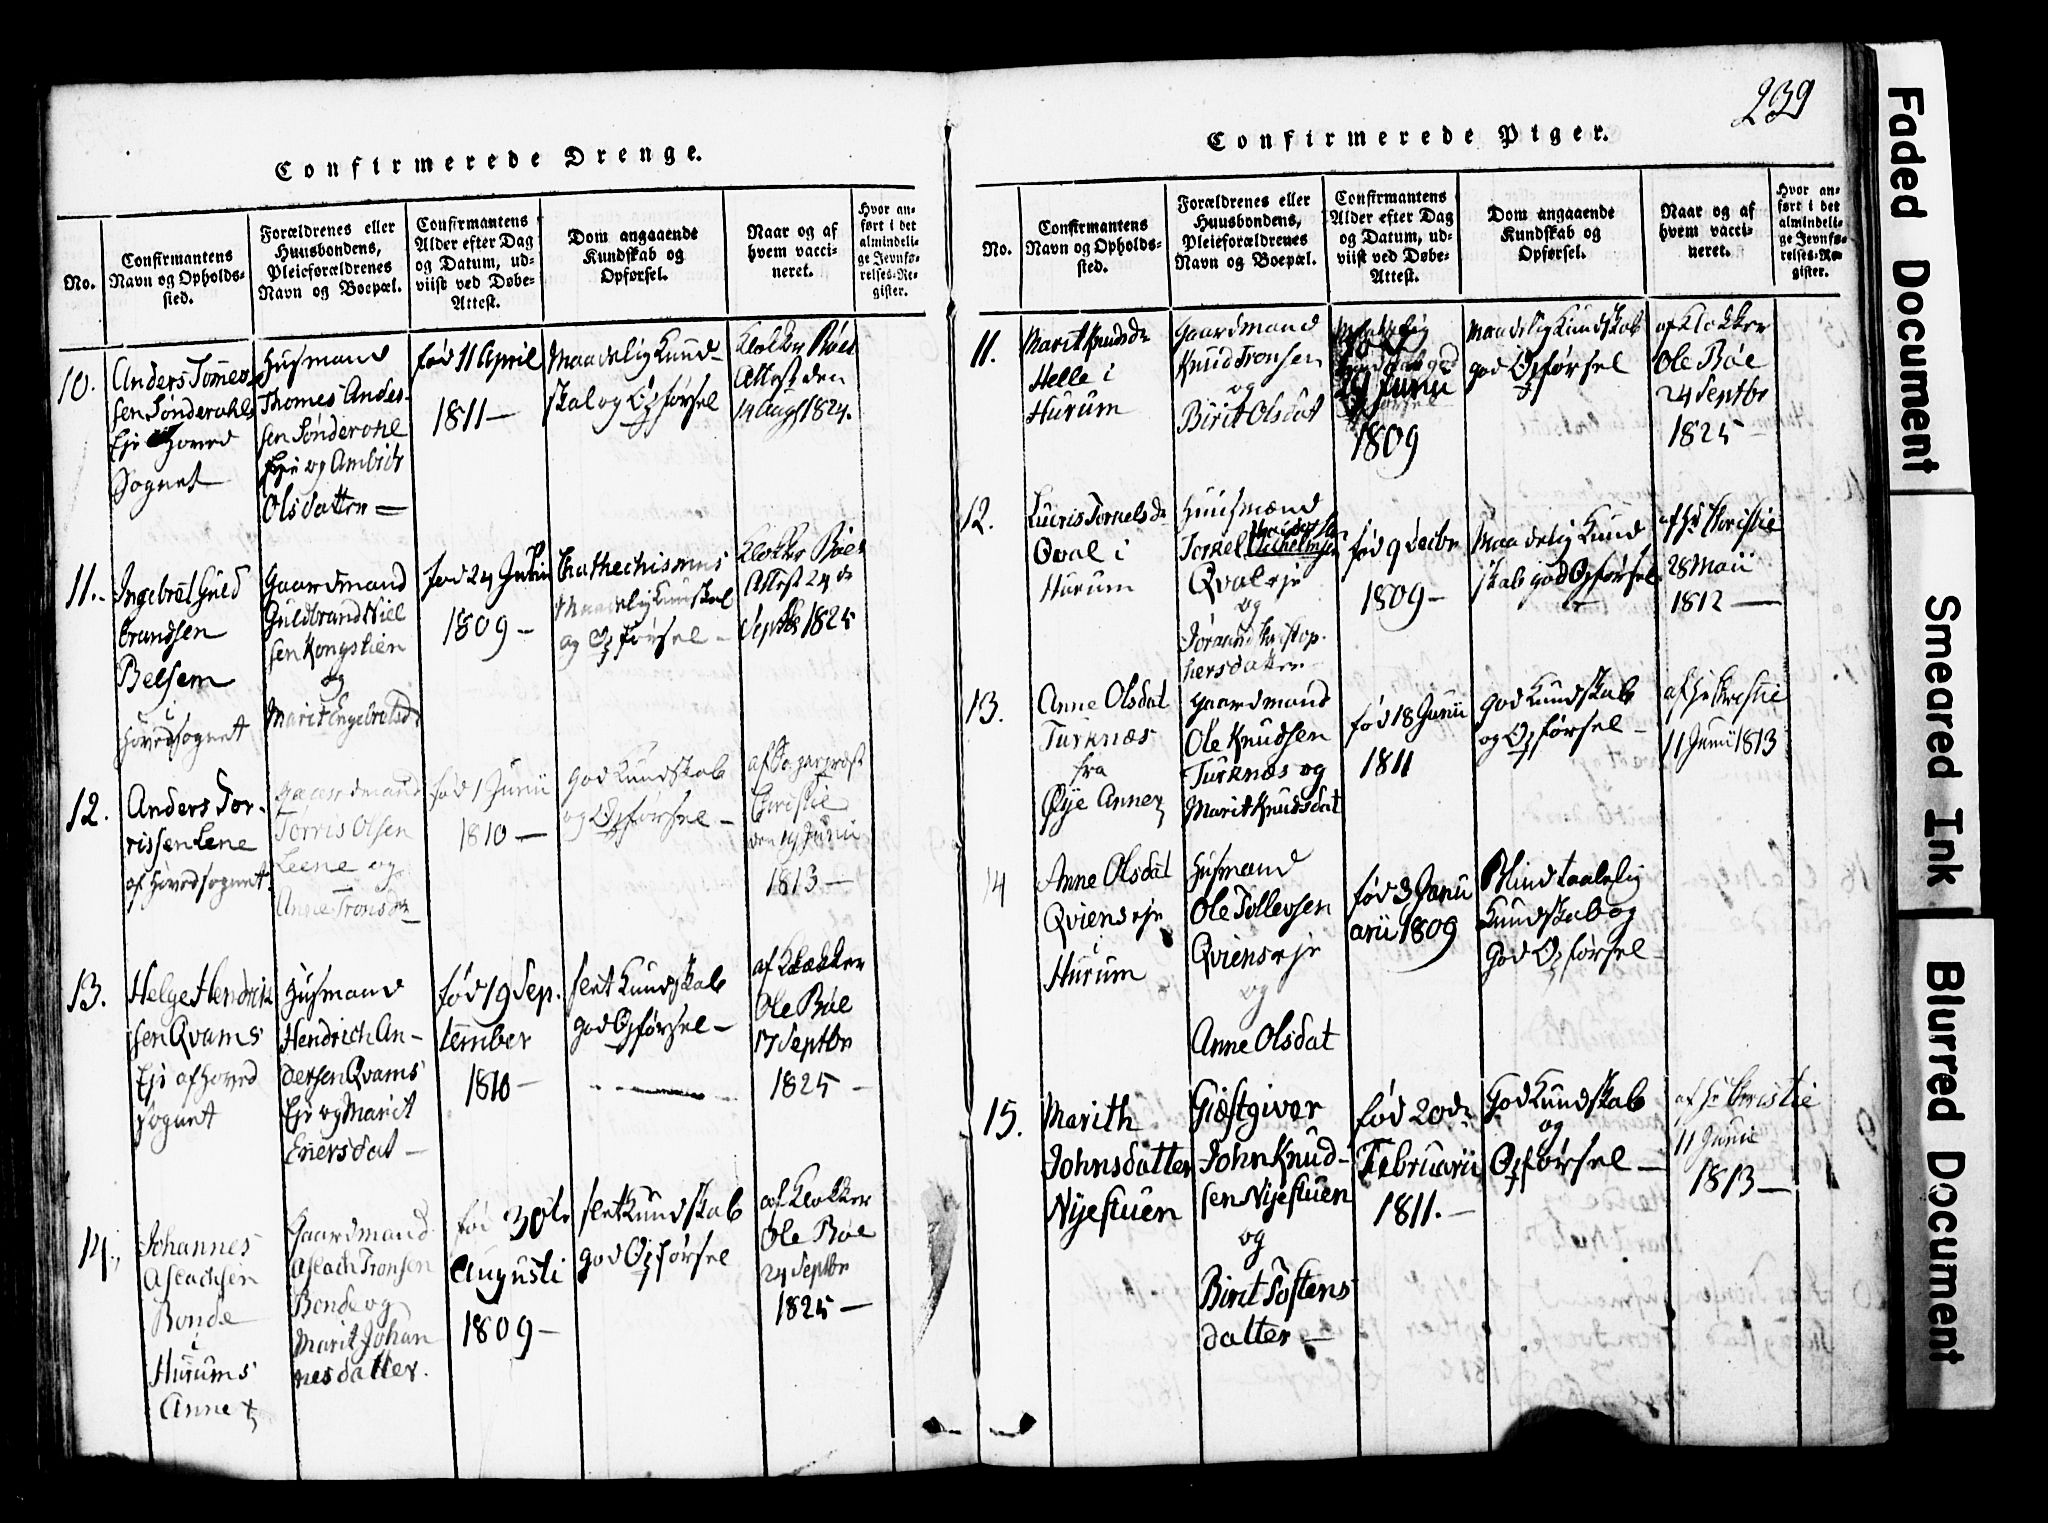 239
Confirmerede Drenge.
No.
Confirmantens
Navn og Opholds-
sted.
Forældrenes eller
Huusbondens,
Pleieforældrenes
Navn og Boepæl.
Confirmantens
Alder efter Dag
og Datum, ud-
viist ved Døbe-
Attest.
Dom angaaende
Kundskab og
Opførsel.
Naar og af
hvem vacci-
neret.
Hvor an-
ført i det
almindeli-
ge Jevnfø-
relses-Re-
gister.
10.
Anders Tomes-
sen Sønderohls
Eje Hoved
Sognet
Husmand
Thomes Anders-
sen Sønderohl
Eje og Ambich
Olsdatter
født 11 April
1811
Maadelig Kund-
skab og Opførsel
Klokker Bøes
Attest den
14 Augst 1824.
11.
Ingebret Guld
brandsen
Belsem
i
Hovedsognet
Gaardmand
Guldbrand Niel
sen Kongstien
og
Marit Engebretsd
fød 24 Junii
1809
Cathechismus
Maadelig Kundskab
og Opførsel
Klokker Bøes
Attest 24 de
Septbr 1825
12.
Anders Tor-
rissen Lene
af Hovedsognet
Gaardmand
Torris Olsen
Leene og
Anne Tronsdr
fød 1 Junii
1810
god Kundskab
og Opførsel
af Sogneprest
Christie
den 19 Junii
1813
13.
Helge Hendrik
sen Qvams
Eje af Hoved
sognet
Husmand
Hendrich An-
dersen Qvams
Eje og Marit
Enersdat
fød 19 Sep-
tember
1810
slet Kundskab
god Opførsel
af Klokker
Ole Bøe
17 Septbr
1825
14.
Johannes
Aslachsen
Bonde
i
Hurums
Annex
Gaardmand
Aslach Tronsen
Bonde og
Marit Johan
nesdatter.
fød 30te
Augusti
1809
slet Kundskab
god Opførsel
af Klokker
Ole Bøe
24 Septbr
1825
Confirmerede Piger.
No.
Confirmantens
Navn og Opholds-
sted.
Forældrenes eller
Huusbondens,
Pleieforældrenes
Navn og Boepæl.
Confirmantens
Alder efter Dag
og Datum, ud-
viist ved Døbe-
Attest.
Dom angaaende
Kundskab og
Opførsel.
Naar og af
hvem vacci-
neret.
Hvor an-
ført i det
almindeli-
ge Jevnfø-
relses-Re-
gister.
11.
Marit Knudsdr
Helle i
Hurum
Gaardmand
Knud Tronsen
og
Birit Olsdat
29 Junii
1809
Maadelig Kundskab
god Opførsel
af Klokker
Ole Bøe
24 Septbr
1825
12.
Lucris Torkelsdr
Qval i
Hurum
Huusmænd
Torkel
Qvalseje
og
Jørand Kristop-
hersdatter
fød 9 Decbr
1809
Maadelig Kund
skab god Opførsel
af Hr Christie
28 Maii
1812
13.
Anne Olsdat
Turknæs
fra
Øye Annex
Gaardmand
Ole Knudsen
Turknæs og
Marit Knudsdat
fød 18 Junii
1811
god Kundskab
og Opførsel
af Hr Christie
11 Junii 1813
14
Anne Olsdat
Qvienseje
i
Hurum
Husmand
Ole Tollevsen
Qvienseje
og
Anne Olsdat
fød 3 Janu
arii 1809
Blind taalelig
Kundskab og
God Opførsel
15.
Marith
Johnsdatter
Nÿestuen
Giæstgiver
John Knud-
sen Nÿestuen
og
Birit Tostens
datter
fød 20de
Februarii
1811.
God Kundskab
og
Opførsel
af Hr Christie
11 Junii
1813
Faded Document
Smeared Ink
Blurred Document